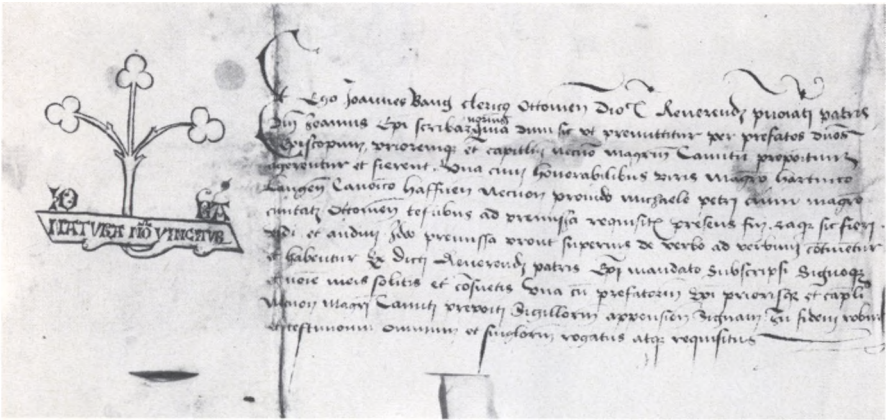 NATURA NO VINCITUR
Et Ego Joannes Bang clericus Ottonien Dioc Reverendi privati patris
Dni Joannis Epi scriba quia dum sic ut premittitur per prefatos dnos
Episcopum, prioremque et capitlm necno magrm Canutu prepositum
agerentur et fierent. Una cum honorabilibus viris magro hartvico
Canonico haffnien Necnon provido Michaele petri civium magro
civitatis Ottonien testibus ad premissa requisitis presens fui, eaque sic fieri
vidi et audivi Ideo premissa prout superius de verbo ad verbum
et habentur Ex dicti Reverendi patris Epi mandato Subscripsi Signoque
et noie meis solitis et consuetis Una cu prefatorum Epi priorisque et capli
Necnon magri Canuti prepositi Sigillorum appension Signavi In fidem robur
et testimoniu Omnium et singlorum rogatus atque requisitus